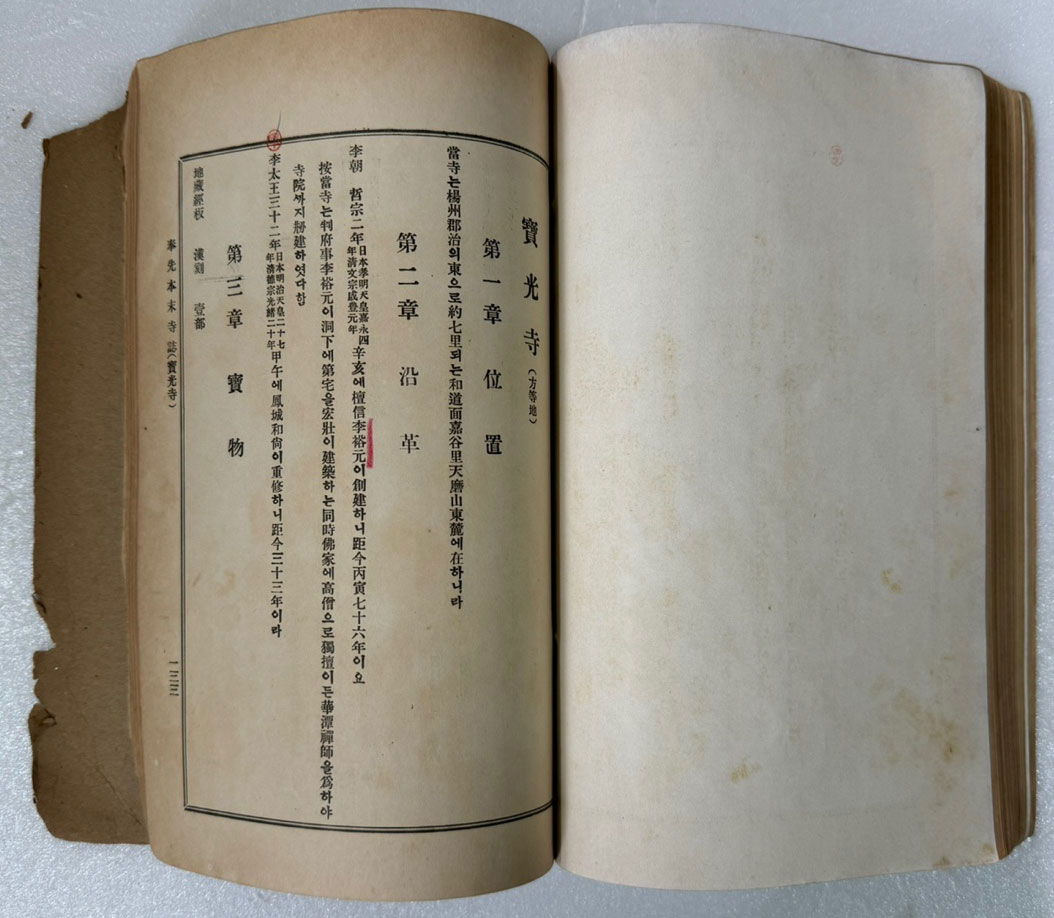 寶光寺(方等地)
第一章 位置
當寺는楊州郡治의東으로約七里되는和道面嘉谷里天磨山東麓에在하니라
第二章 沿革
李朝 哲宗二年日本孝明天皇嘉永四年淸文宗咸豊元年辛亥에檀信李裕元이創建하니距今丙寅七十六年이요
按當寺는判府事李裕元이洞下에第宅을宏壯이建築하는同時佛家에高僧으로獨擅이든華潭禪師을爲하야
寺院까지刱建하엿다함
李太王三十二年日本明治天皇二十七年淸德宗光緖二十年甲午에鳳城和尙이重修하니距今三十三年이라
第三章 寶物
地藏經板 漢刻 壹部
奉先本末寺誌(寶光寺)
一三三